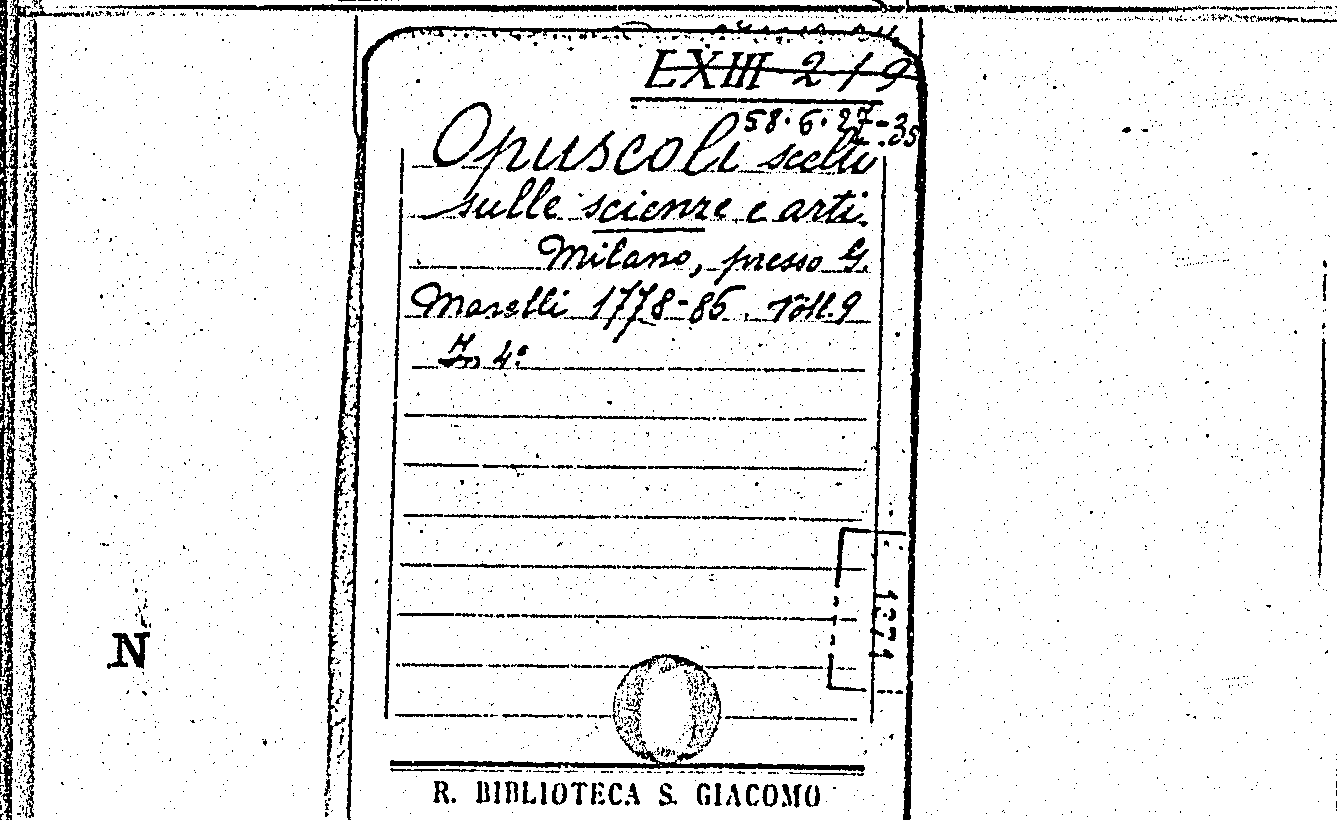 LXIII 2 / 9
58.6.27-35
Opuscoli scelti
sulle scienze e arti.
Milano, presso G.
Marelli 1778-86. Voll. 9
In 4°
1371
N
R. BIBLIOTECA S. GIACOMO